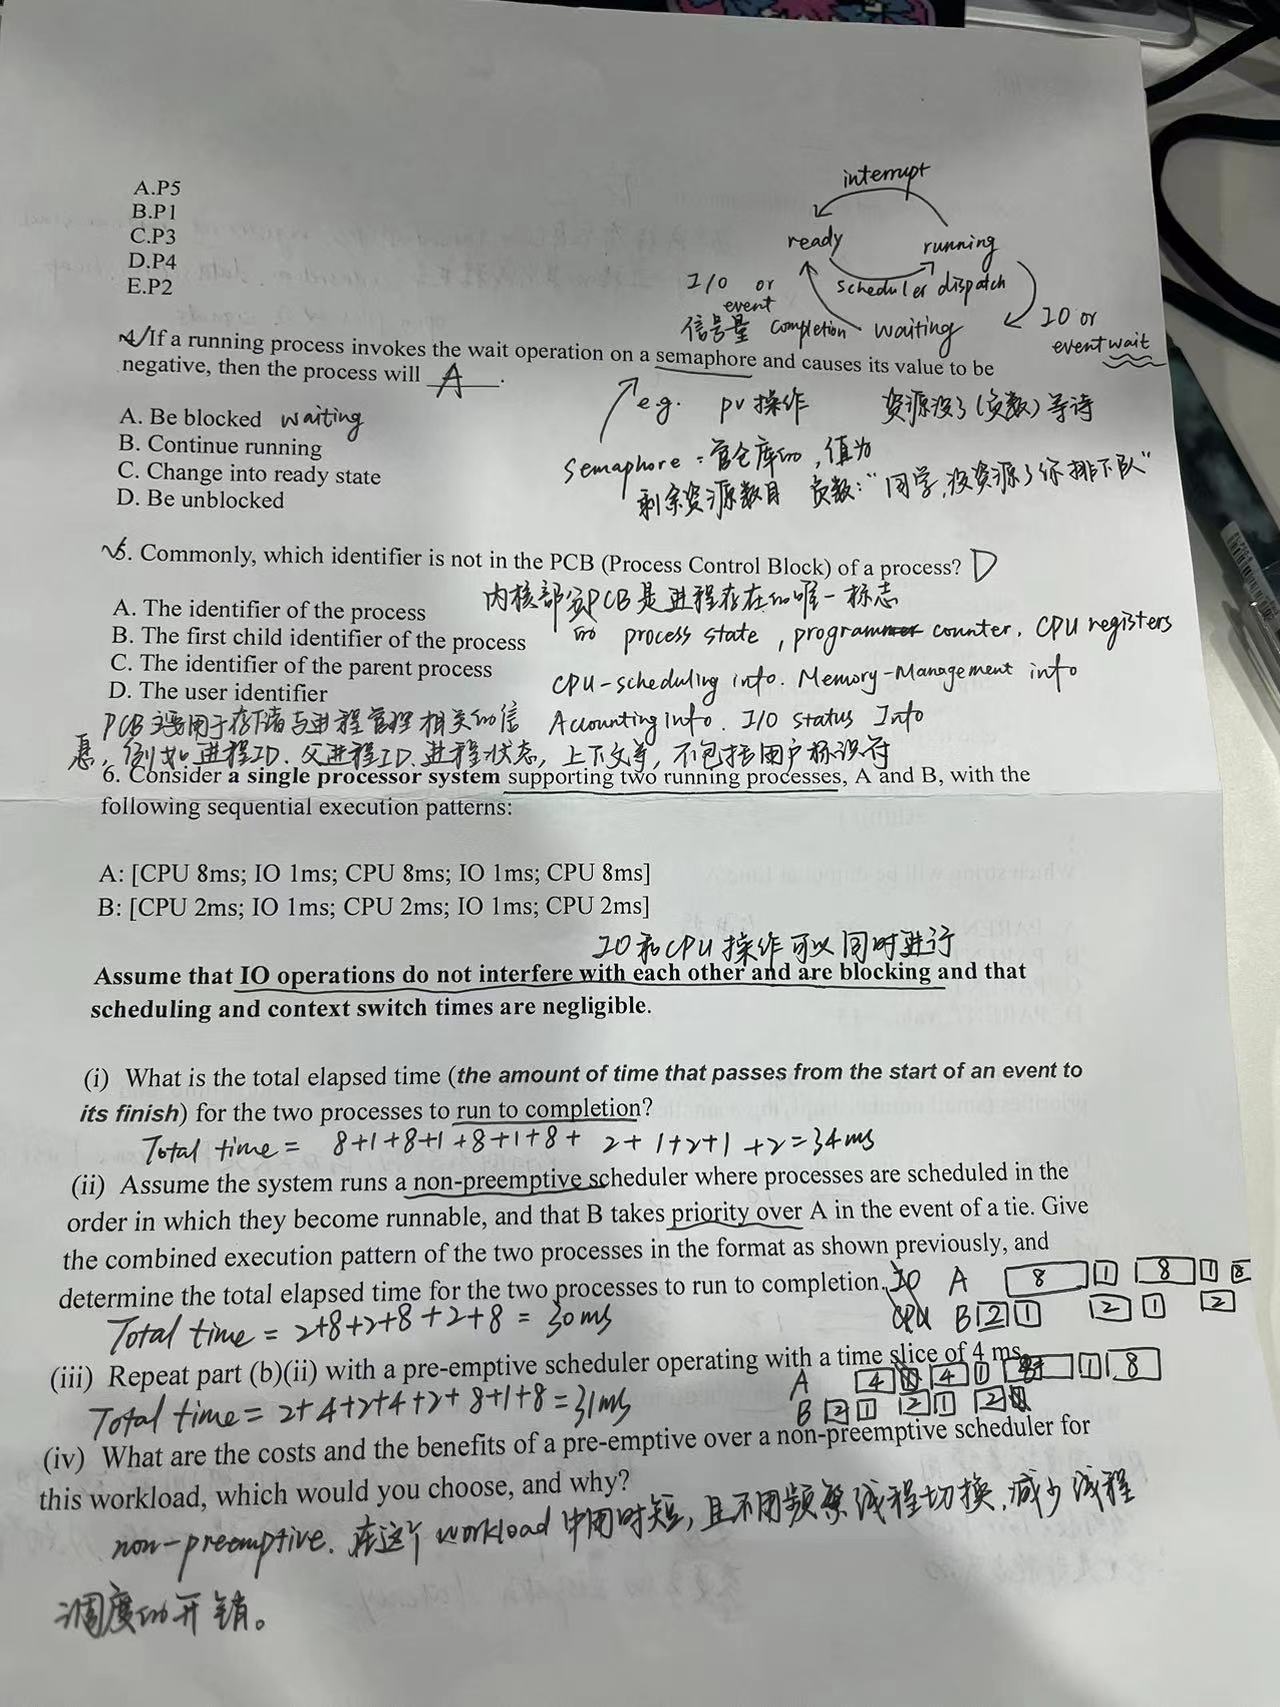 A.P5
B.P1
C.P3
D.P4
E.P2
interrupt
ready
running
scheduler dispatch
I/O or
event
信号量 completion
waiting
IO or
event wait
4. If a running process invokes the wait operation on a semaphore and causes its value to be
negative, then the process will A.
e.g. pv 操作 资源没了(负数)等待
A. Be blocked waiting
B. Continue running
C. Change into ready state
D. Be unblocked
semaphore: 管仓库的, 值为
剩余资源数目 负数: "同学,没资源了你排下队"
5. Commonly, which identifier is not in the PCB (Process Control Block) of a process? D
内核部分PCB是进程存在的唯一标志
A. The identifier of the process
B. The first child identifier of the process
C. The identifier of the parent process
D. The user identifier
process state, program counter. CPU registers
CPU-scheduling info. Memory-Management info
Accounting info. I/O status Info
PCB主要用于存储与进程管理相关的信
息, 例如进程ID. 父进程ID. 进程状态, 上下文等, 不包括用户标识符
6. Consider a single processor system supporting two running processes, A and B, with the
following sequential execution patterns:
A: [CPU 8ms; IO 1ms; CPU 8ms; IO 1ms; CPU 8ms]
B: [CPU 2ms; IO 1ms; CPU 2ms; IO 1ms; CPU 2ms]
IO和CPU操作可以同时进行
Assume that IO operations do not interfere with each other and are blocking and that
scheduling and context switch times are negligible.
(i) What is the total elapsed time (the amount of time that passes from the start of an event to
its finish) for the two processes to run to completion?
Total time = 8+1+8+1+8+1+8+ 2+1+2+1+2=34ms
(ii) Assume the system runs a non-preemptive scheduler where processes are scheduled in the
order in which they become runnable, and that B takes priority over A in the event of a tie. Give
the combined execution pattern of the two processes in the format as shown previously, and
determine the total elapsed time for the two processes to run to completion.
A 8 1 8 1 8
B 2 1 2 1 2
Total time = 2+8+2+8+2+8 = 30ms
(iii) Repeat part (b)(ii) with a pre-emptive scheduler operating with a time slice of 4 ms.
A 4 4 1 1 8
B 2 1 2 1 2
Total time = 2+4+2+4+2+8+1+8=31ms
(iv) What are the costs and the benefits of a pre-emptive over a non-preemptive scheduler for
this workload, which would you choose, and why?
non-preemptive. 在这个workload中用时短, 且不用频繁线程切换,减少线程
调度的开销。